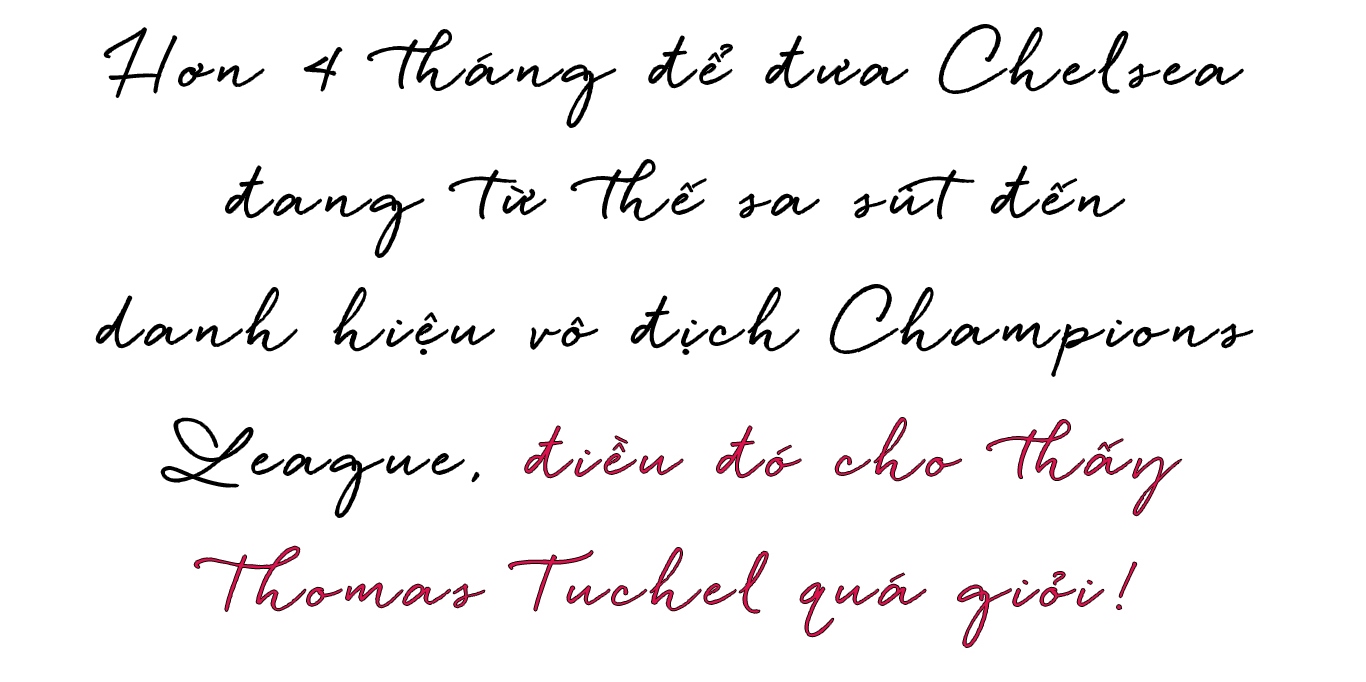 Hơn 4 tháng để đưa Chelsea
đang từ thế sa sút đến
danh hiệu vô địch Champions
League, điều đó cho thấy
Thomas Tuchel quá giỏi!